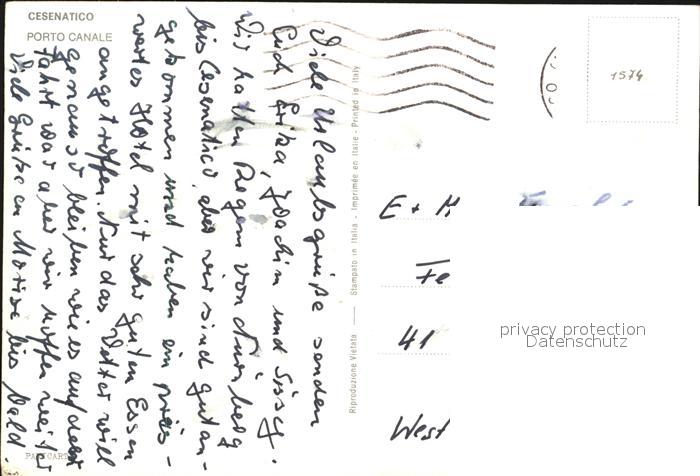 CESENATICO
PORTO CANALE
Viele Urlaubsgrüße senden
Euch Erika, Joachim und Sissy.
Wir hatten Regen von Nürnberg
bis Cesenatico, aber wir sind gut an-
gekommen und haben ein preis-
wertes Hotel mit sehr guten Essen
angetroffen. Nur das Wetter will
genauso bleiben wie es auf der
Fahrt war aber wir hoffen weiter
Viele Grüße an bis bald.
Riproduzione Vietata — Stampato in Italia - Imprimée en Italie - Printed in Italy
1574
E + H
Fe
41
West
privacy protection
Datenschutz